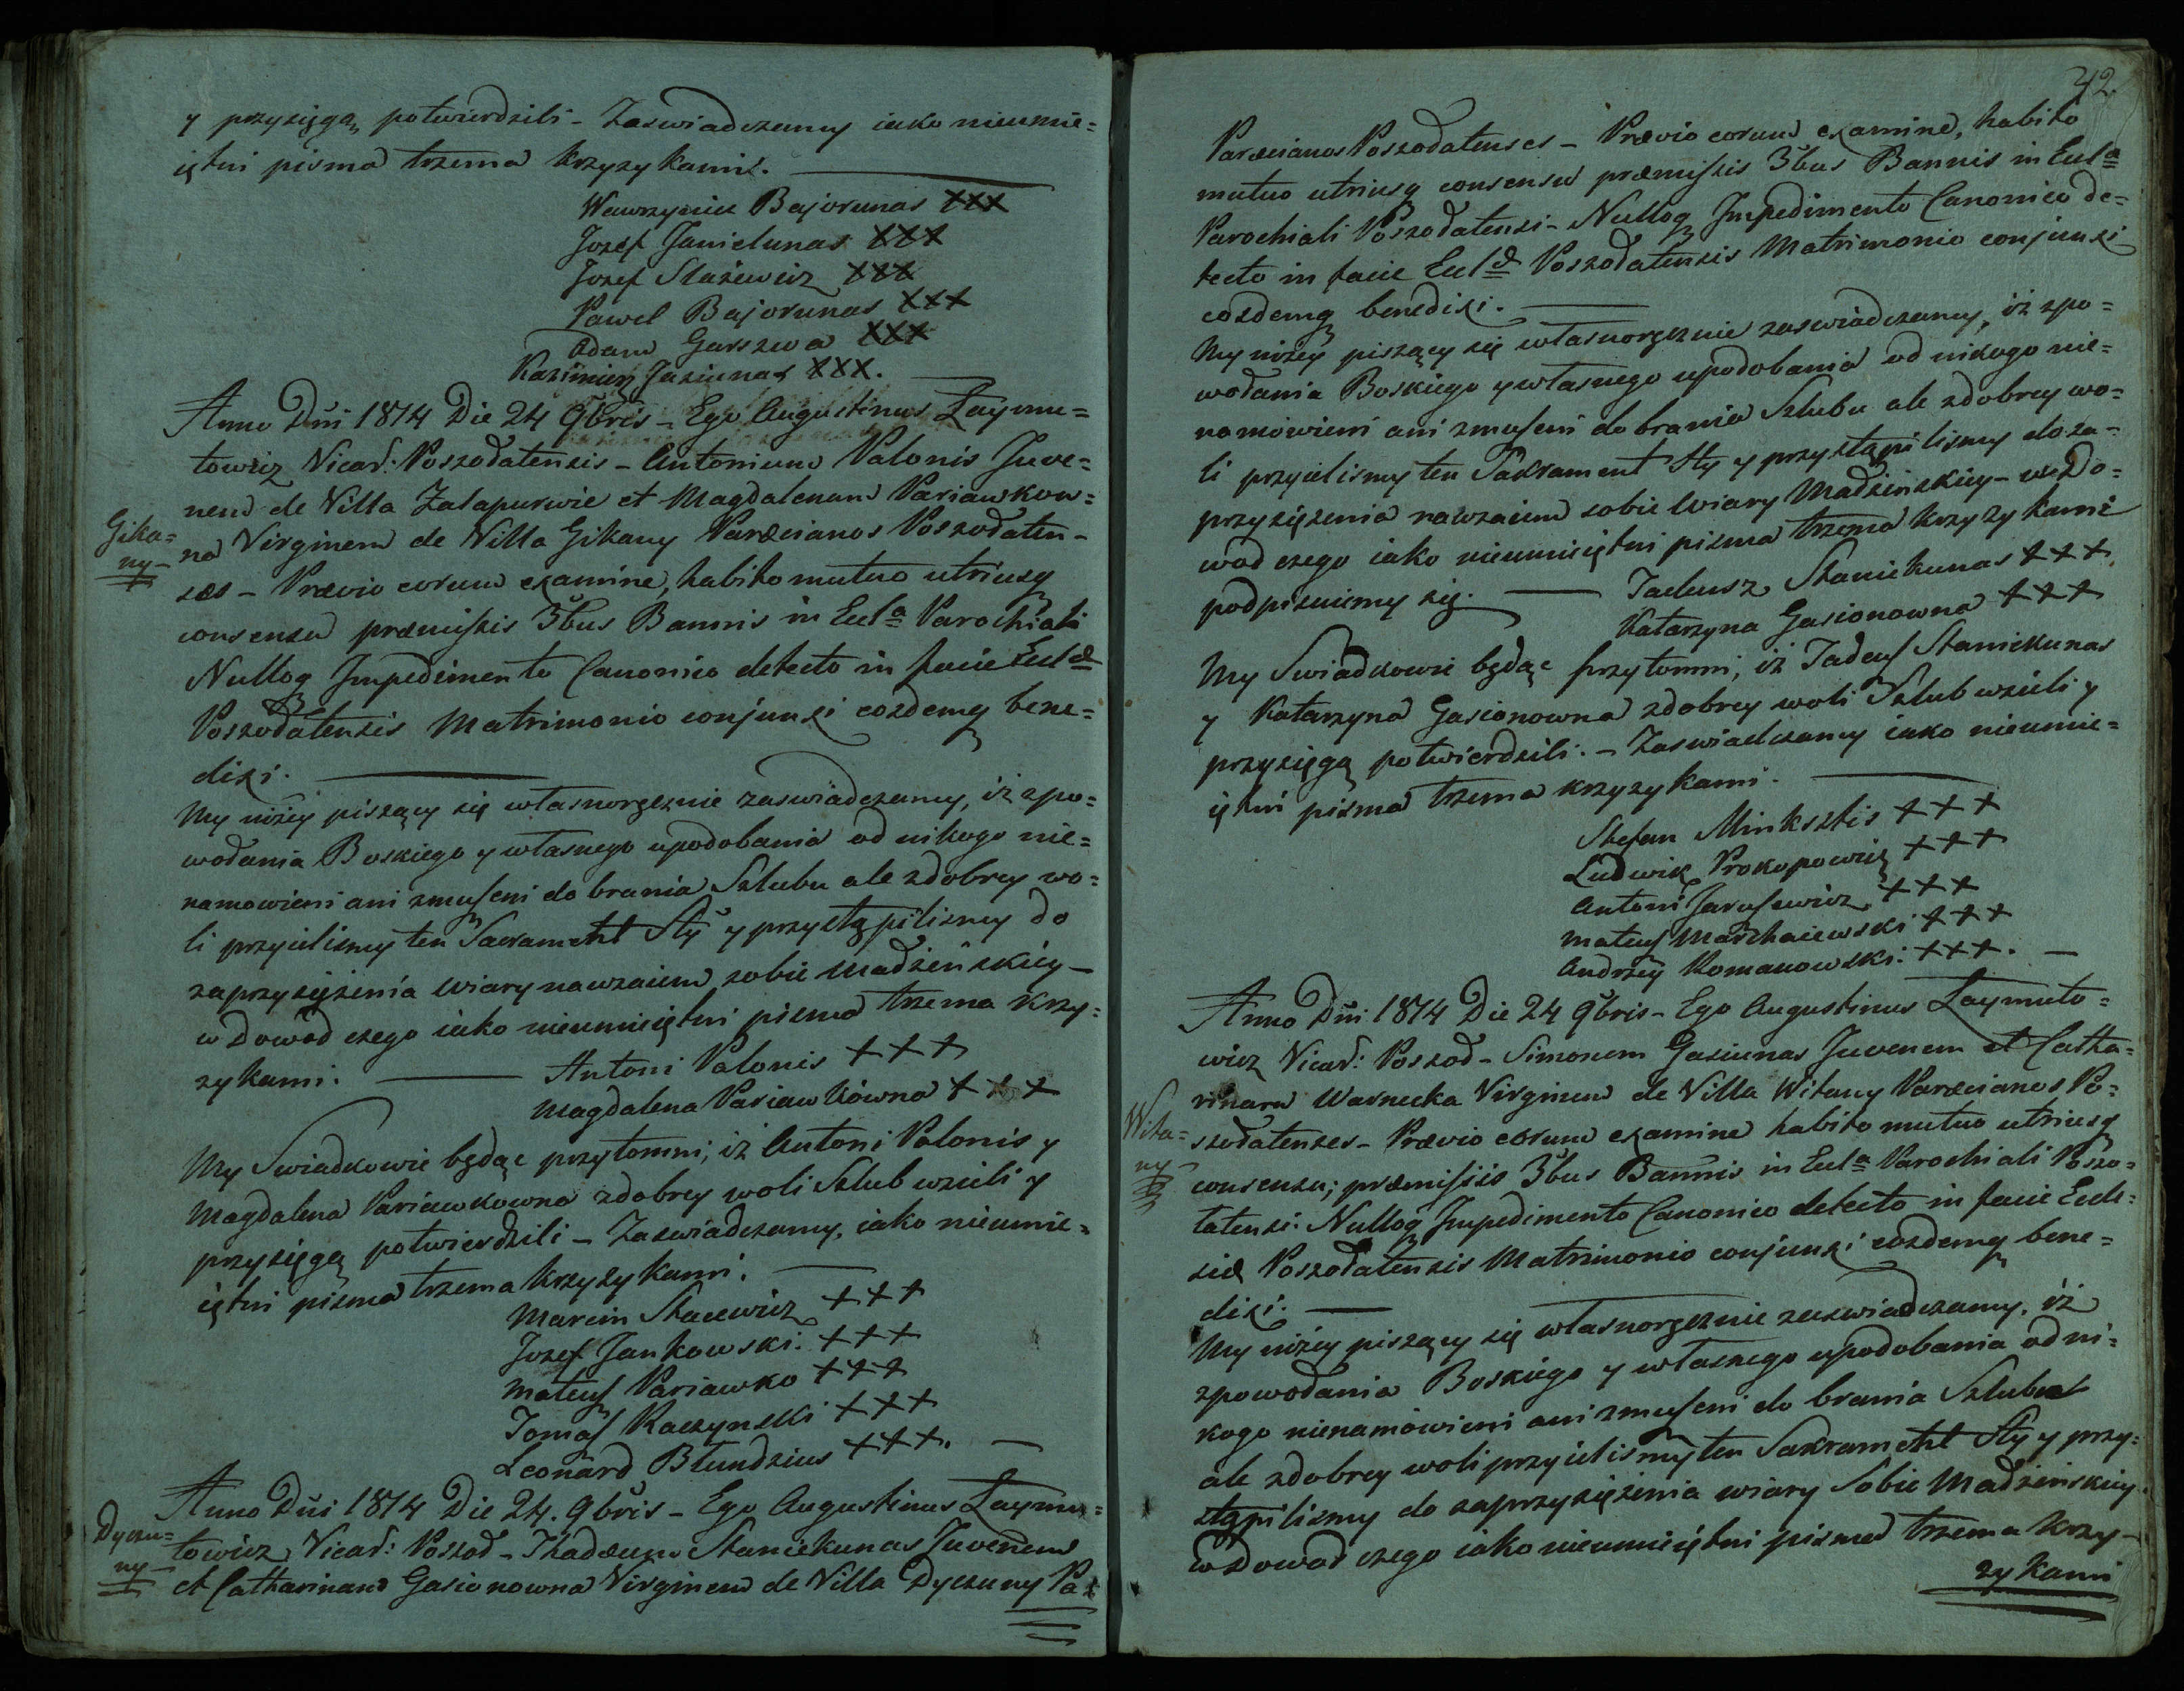 y przysięgą potwierdzili – Zaswiadczamy iako nieumie=
iętni pisma trzema krzyzykami.
Wawrzyniec Bajorunas XXX
Jozef Janielunas XXX
Jozef Stazewicz XXX
Pawel Bajorunas XXX
Adam Garszwa XXX
Kazimierz Jasiunas XXX.
Anno Dni 1814 Die 24 9bris – Ego Augustinus Laymu=
towicz Vicar: Poszodatensis – Antonium Valonis Juve=
nem de Villa Zalapurwie et Magdalenam Pariawkow=
na Virginem de Villa Gikany Paræcianos Poszodaten-
Gika=
ny –
ses – Prævio eorum examine, habito mutuo utriusq
consensu præmissis 3bus Bannis in Eccla Parochiali
Nulloq Impedimento Canonico detecto in facie Ecclæ
Poszodatensis Matrimonio conjunxi eosdemq bene=
dixi.
My niżey piszący się własnoręcznie zaswiadczamy, iż zpo=
wodania Boskiego y własnego upodobania od nikogo nie=
namowieni ani zmuszeni do brania Szlubu ale zdobrey wo=
li przyielismy ten Sacrament Sty y przystąpilismy do
zaprzysiężenia wiary nawzaiem sobie Madżeńskiey –
w Dowod czego iako nieumieiętni pisma trzema krzy=
zykami. Antoni Valonis +++
Magdalena Pariawkówna +++
My Swiadkowie będąc przytomni, iż Antoni Valonis y
Magdalena Pariawkowna zdobrey woli Szlub wzieli y
przysięgą potwierdzili – Zaswiadczamy, iako nieumie=
iętni pisma trzema krzyzykami.
Marcin Stacewicz +++
Jozef Jankowski. +++
Mateusz Pariawko +++
Tomasz Raczynski +++
Leonard Błundzius +++.
Anno Dni 1814 Die 24. 9bris – Ego Augustinus Laymu=
Dyczu=
ny –
towicz Vicar: Poszod – Thadæum Staniekunas Juvenem
et Catharinam Gasionowna Virginem de Villa Dyczuny Pa=
42.
Paræcianos Poszodatenses – Prævio eorum examine, habito
mutuo utriusq consensu præmissis 3bus Bannis in Eccla
Parochiali Poszodatensi – Nulloq Impedimento Canonico de=
tecto in facie Ecclæ Poszodatensis Matrimonio conjunxi
eosdemq benedixi.
My niżey piszący się własnoręcznie zaswiadczamy, iż zpo=
wodania Boskiego y własnego upodobania od nikogo nie=
namowieni ani zmuszeni do brania Szlubu ale zdobrey wo=
li przyielismy ten Sakrament Sty y przystąpilismy do za=
przysiężenia nawzaiem sobie Wiary Madżeńskiey – w Do=
wod czego iako nieumieiętni pisma trzema krzyzykami
podpisuiemy się. Tadeusz Staniekunas +++
Katarzyna Gasionowna +++
My Swiadkowie będąc przytomni, iż Tadeusz Staniekunas
y Katarzyna Gasionowna zdobrey woli Szlub wzieli y
przysięgą potwierdzili. – Zaswiadczamy iako nieumie=
iętni pisma trzema krzyzykami.
Stefan Minksztis +++
Ludwik Prokopowicz +++
Antoni Jarusewicz +++
Mateusz Marchaiewski +++
Andrzey Romanowski. +++.
Anno Dni 1814 Die 24 9bris – Ego Augustinus Laymuto=
wicz Vicar: Poszod – Simonem Gasiunas Juvenem et Catha=
rinam Warnecka Virginem de Villa Witany Paræcianos Po=
Wita=
ny –
szodatenses – Prævio eorum examine habito mutuo utriusq
consensu; præmissis 3bus Bannis in Eccla Parochiali Poszo=
tatensi. Nulloq Impedimento Canonico detecto in facie Eccle=
siæ Poszodatensis Matrimonio conjunxi eosdemq bene=
dixi.
My niżey piszący się własnoręcznie zaswiadczamy, iż
zpowodania Boskiego y własnego upodobania od ni=
kogo nienamówieni ani zmuszeni do brania Szlubu
ale zdobrey woli przyielismy ten Sakrament Sty y przy=
stąpilismy do zaprzysiężenia wiary Sobie Madżeńskiey.
w Dowod czego iako nieumieiętni pisma trzema krzy –
zykami